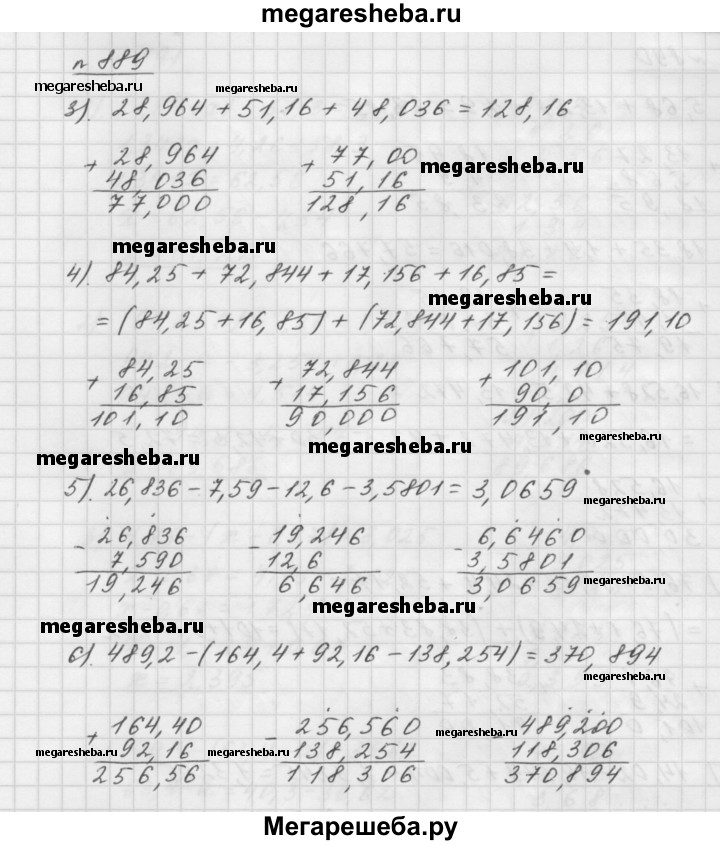 megaresheba.ru
n 889
megaresheba.ru megaresheba.ru
3). 28,964 + 51,16 + 48,036 = 128,16
+ 28,964 + 77,00
48,036 51,16 megaresheba.ru
77,000 128,16
megaresheba.ru
4). 84,25 + 72,844 + 17,156 + 16,85 =
megaresheba.ru
= (84,25 + 16,85) + (72,844 + 17,156) = 191,10
+ 84,25 + 72,844 + 101,10
16,85 17,156 90,0
101,10 90,000 191,10
megaresheba.ru
megaresheba.ru
megaresheba.ru
5). 26,836 - 7,59 - 12,6 - 3,5801 = 3,0659
megaresheba.ru
- 26,836 - 19,246 - 6,6460
7,590 12,6 3,5801
19,246 6,646 3,0659 megaresheba.ru
megaresheba.ru
megaresheba.ru
6). 489,2 - (164,4 + 92,16 - 138,254) = 370,894
megaresheba.ru
+ 164,40 - 256,560 - 489,200
megaresheba.ru
megaresheba.ru 92,16 megaresheba.ru 138,254 118,306 megaresheba.ru
256,56 118,306 370,894
Мегарешеба.ру